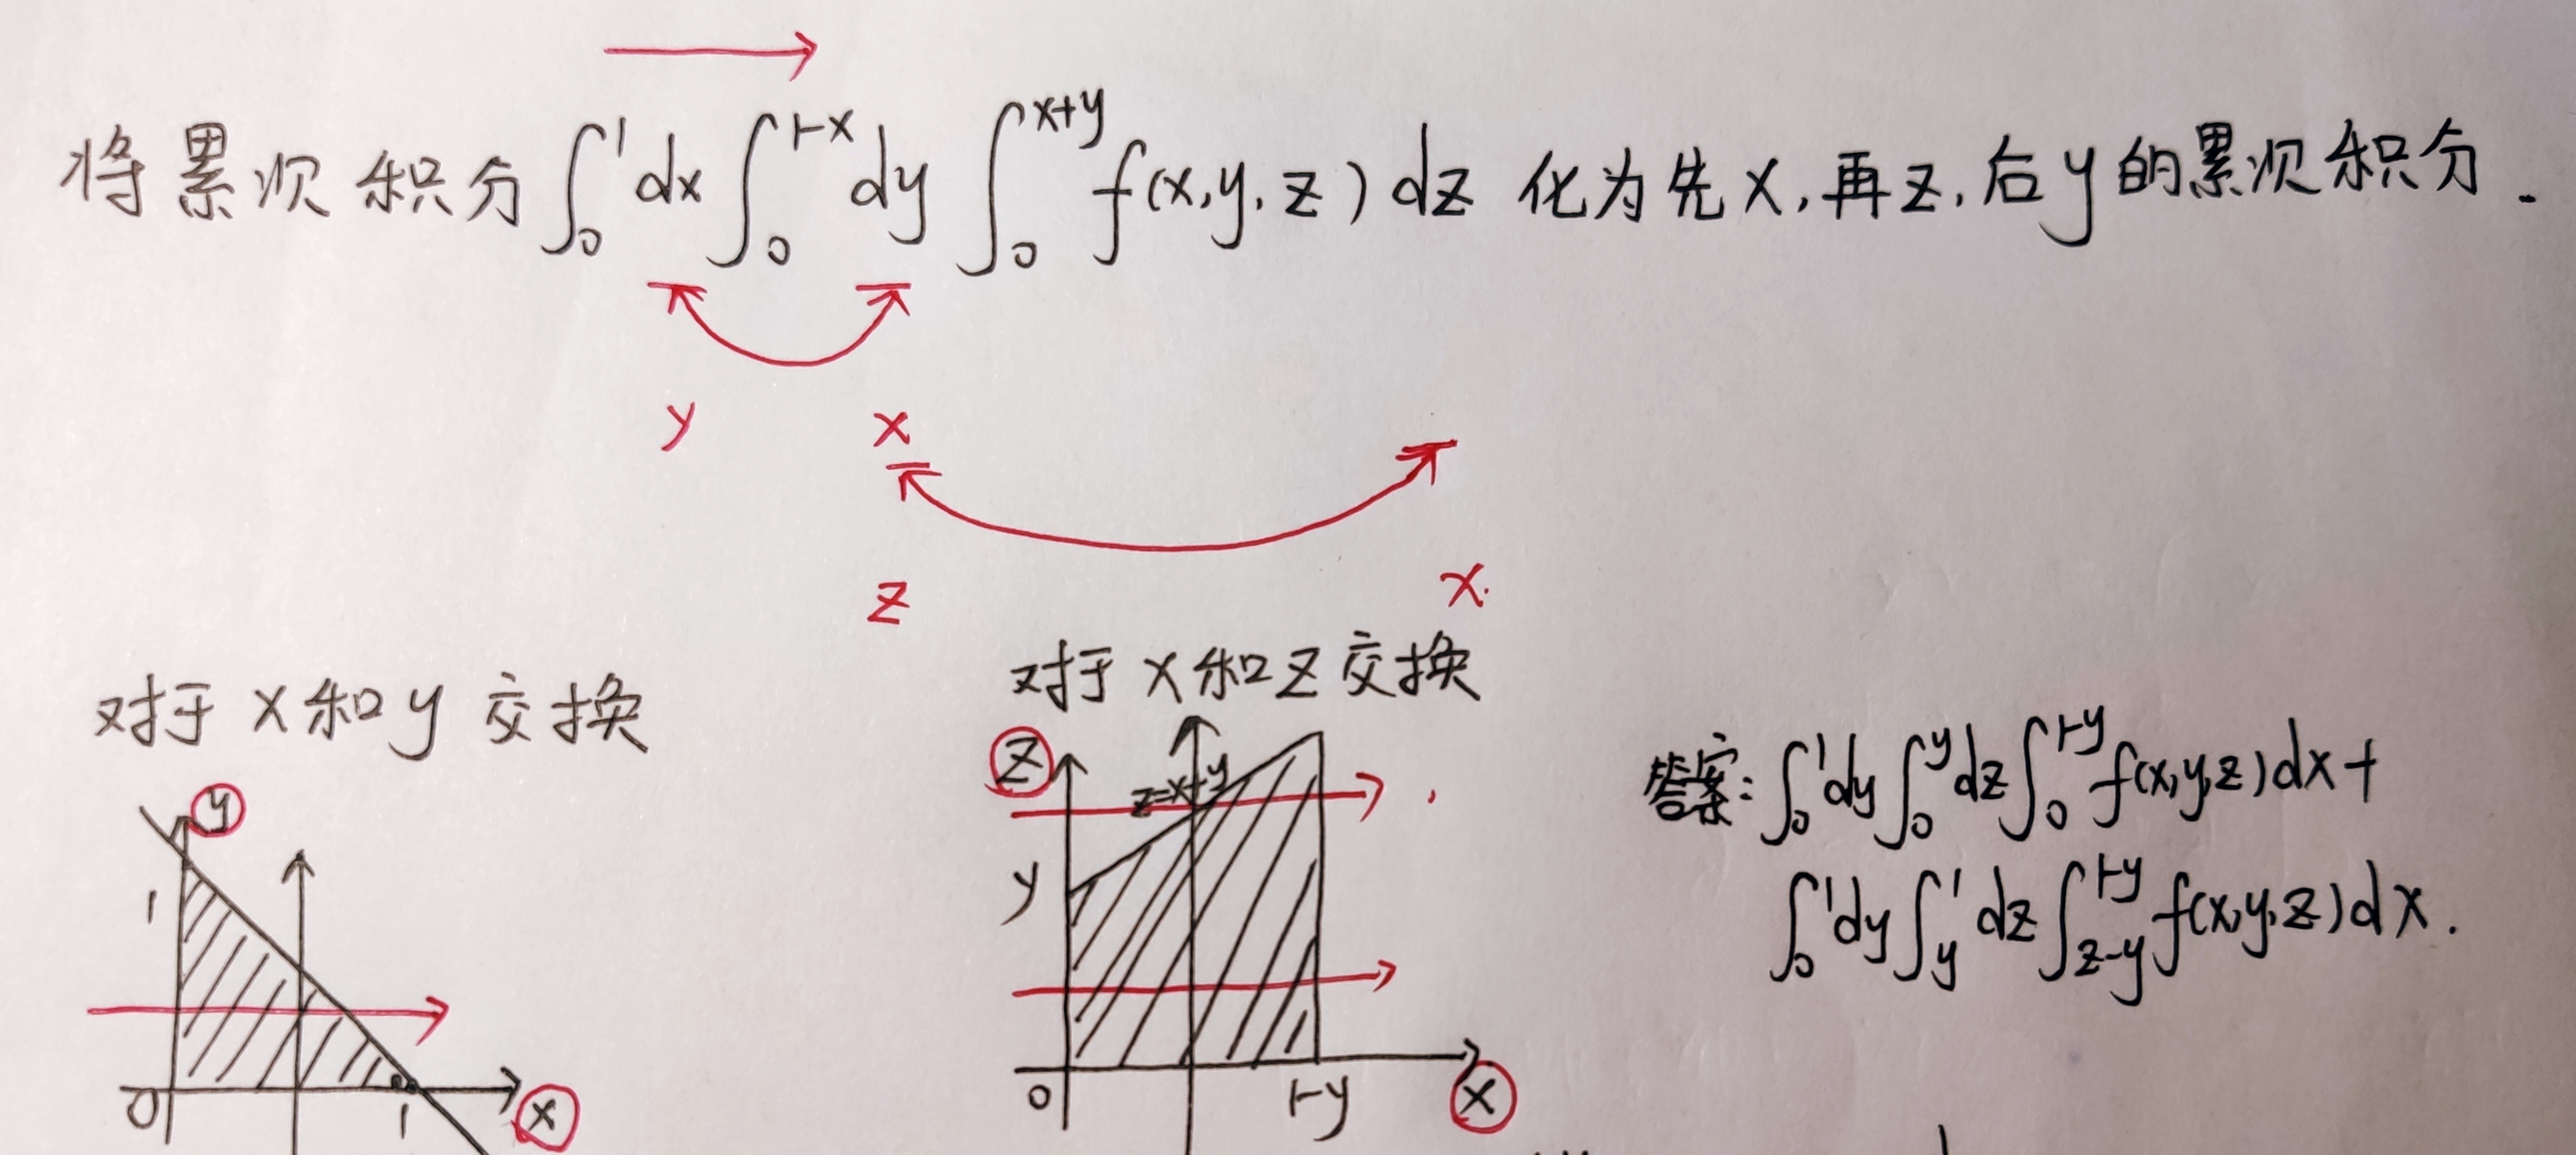 将累次积分∫₀¹dx∫₀^{1-x}dy∫₀^{x+y}f(x,y,z)dz 化为先x,再z,后y的累次积分.
y x
z x.
对于x和y交换
对于x和z交换
y
1
0
1
x
z
z=x+y
y
0
1-y
x
答案:∫₀¹dy∫₀^y dz∫₀^{1-y}f(x,y,z)dx+
∫₀¹dy∫_y^1 dz∫_{z-y}^{1-y}f(x,y,z)dx.